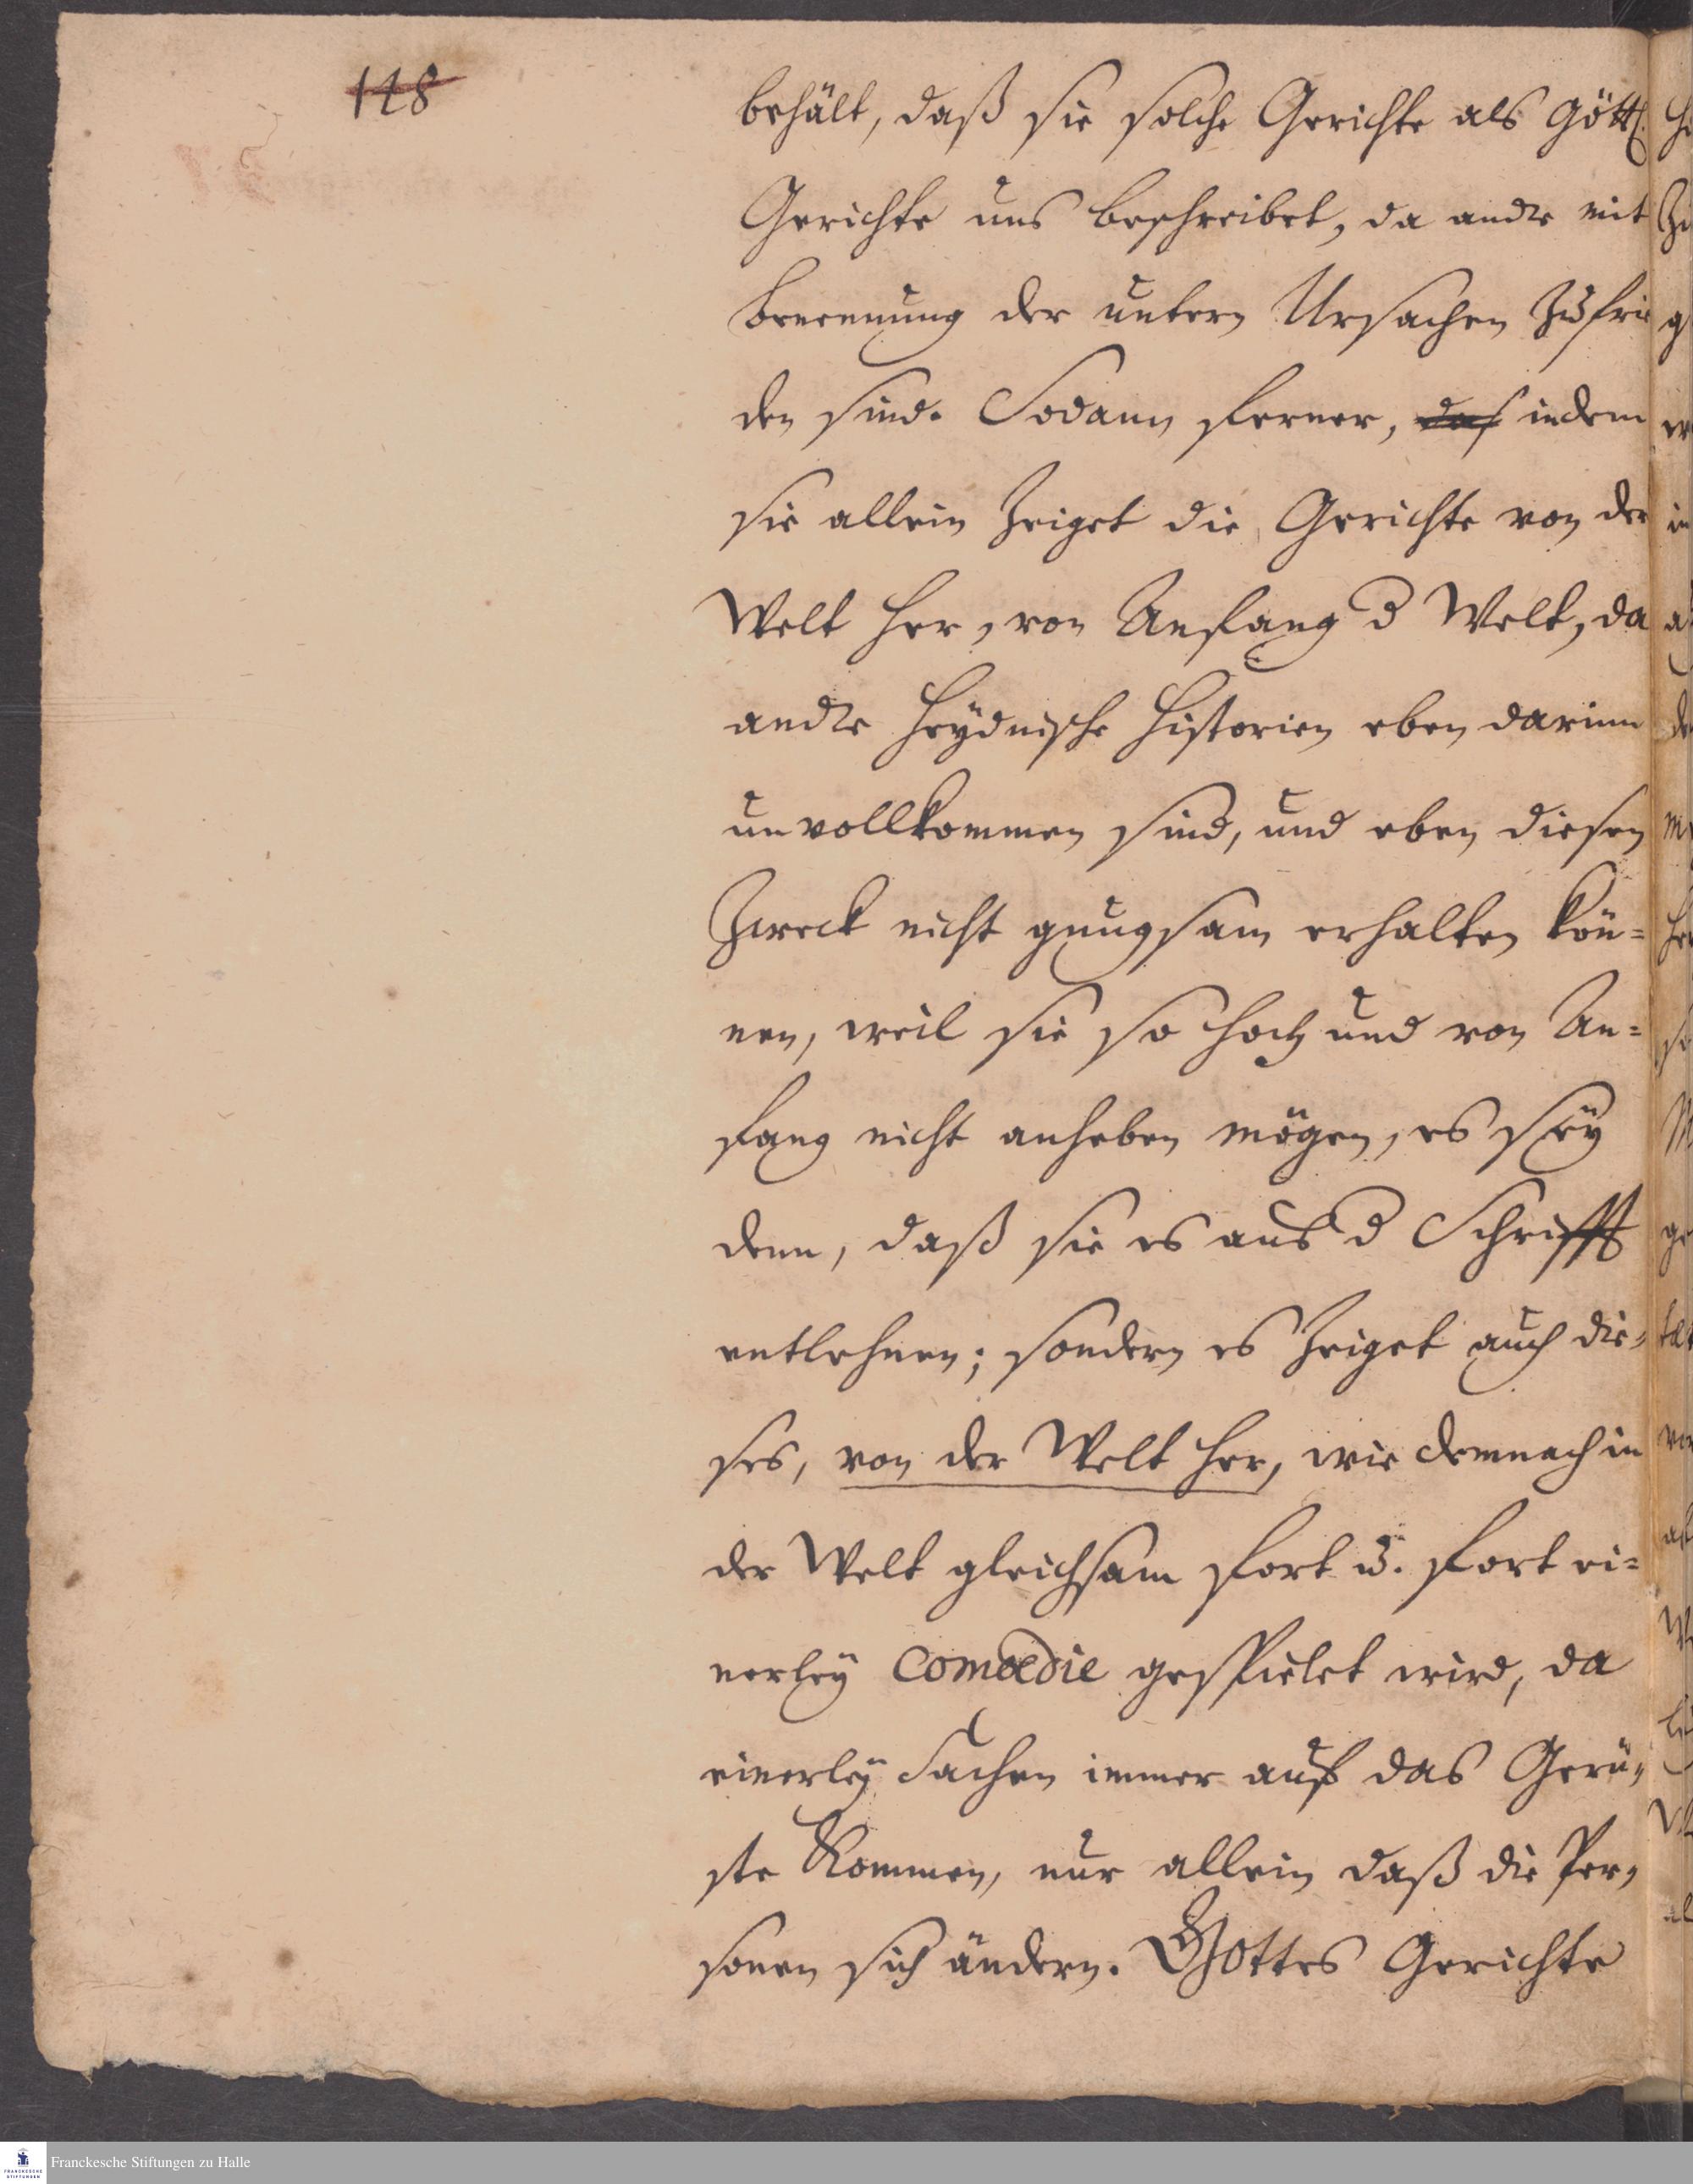 148
behält, daß sie solche Gerichte als Göttl.
Gerichte uns beschreibet, da andre mit
benennung der untern Ursachen zufrie
den sind. Sodann ferner, das indem
sie allein zeiget die Gerichte von der
Welt her, von Anfang d Welt, da
andre heÿdnische Historien eben darinn
unvollkommen sind, und eben diesen
Zweck nicht gnugsam erhalten kön=
nen, weil sie so hoch und von An=
fang nicht anheben mögen, es seÿ
denn, daß sie es aus d Schrifft
entlehnen; sondern es zeiget auch die=
ses, von der Welt her, wie demnach in
der Welt gleichsam fort u. fort ei=
nerleÿ Comœdie gespielet wird, da
einerleÿ Sachen immer auf das Gerü=
ste kommen, nur allein daß die Per=
sonen sich ändern. Gottes Gerichte
Franckesche Stiftungen zu Halle
FRANCKESCHE
STIFTUNGEN